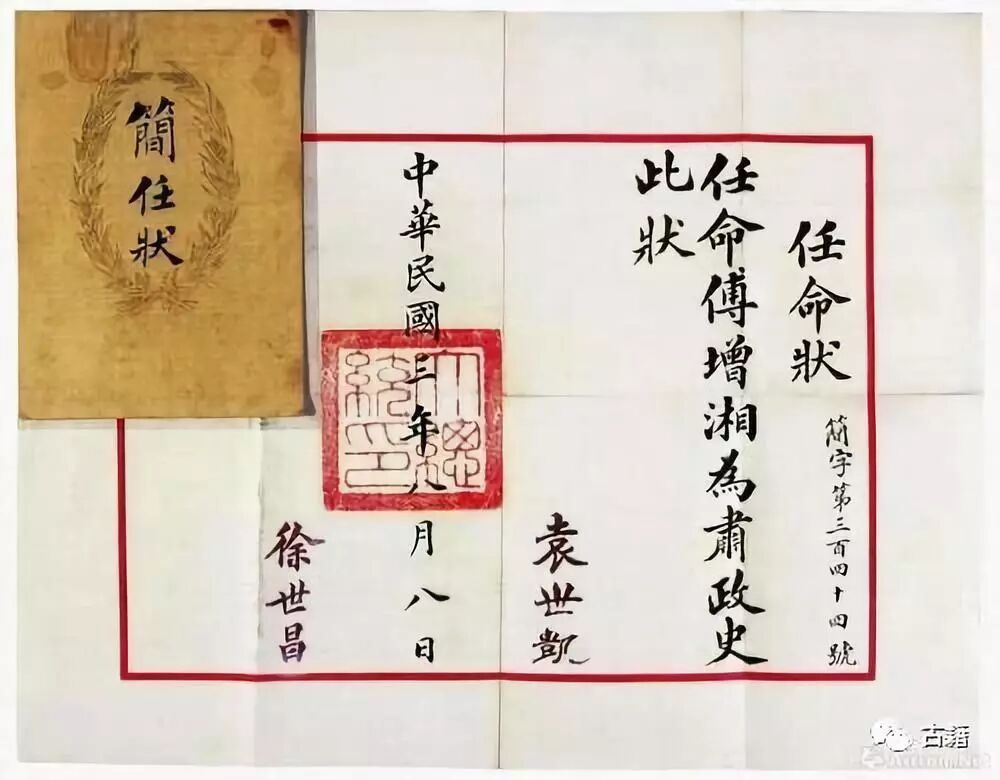 任命狀
簡字第三百四十四號
任命傅增湘為肅政史
此狀
袁世凱
中華民國三年八月八日
大總
統印
徐世昌
簡任狀
古籍